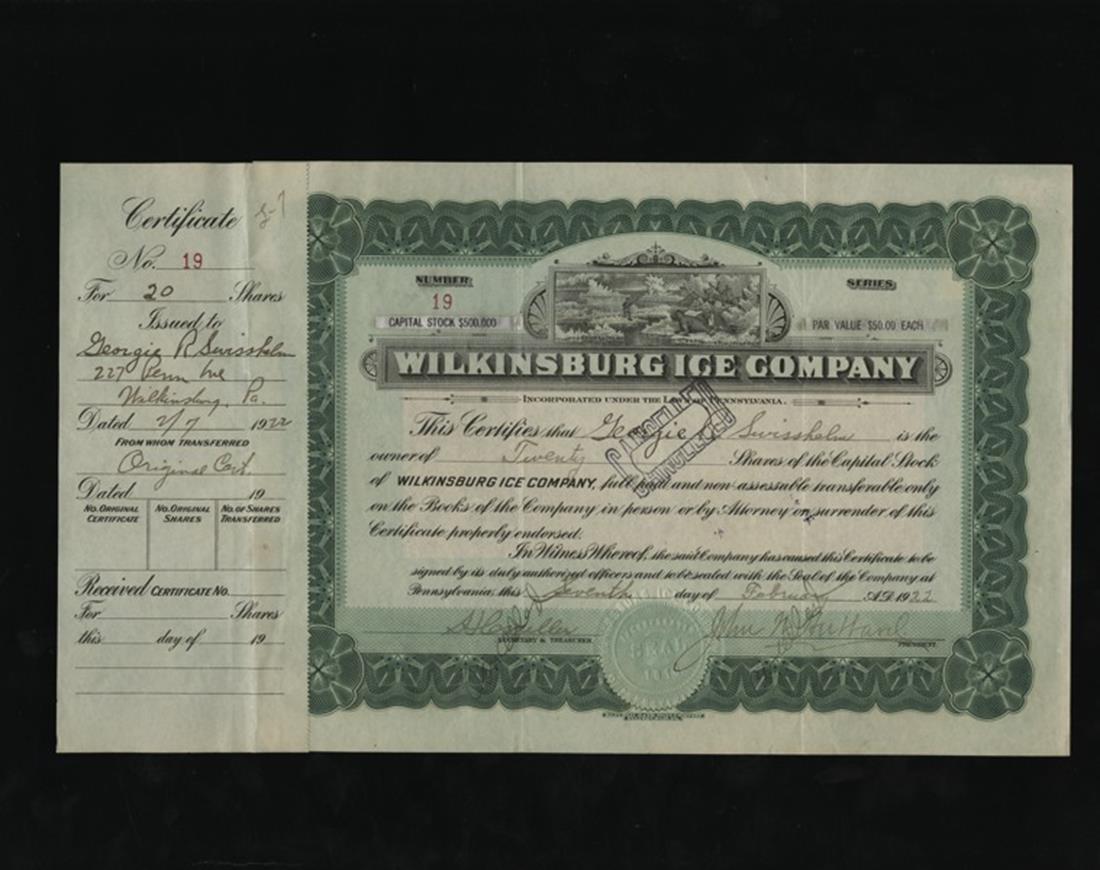 Certificate
No. 19
For 20 Shares
Issued to
Georgie R Swisshelm
227 Penn Ave
Wilkinsburg, Pa.
Dated 2/7 1922
FROM WHOM TRANSFERRED
Original Cert.
Dated 19
NO. ORIGINAL CERTIFICATE
NO. ORIGINAL SHARES
NO. OF SHARES TRANSFERRED
Received CERTIFICATE NO.
For Shares
this day of 19
NUMBER
19
SERIES
CAPITAL STOCK $500,000
PAR VALUE $50.00 EACH
WILKINSBURG ICE COMPANY
INCORPORATED UNDER THE LAWS OF PENNSYLVANIA.
CANCELLED
CANCELLED
This Certifies that Georgie R Swisshelm is the
owner of Twenty Shares of the Capital Stock
of WILKINSBURG ICE COMPANY, full paid and non-assessable transferable only
on the Books of the Company in person or by Attorney on surrender of this
Certificate properly endorsed.
In Witness Whereof, the said Company has caused this Certificate to be
signed by its duly authorized officers and to be sealed with the Seal of the Company at
Pennsylvania, this Seventh day of February A.D. 1922
SECRETARY & TREASURER
John
PRESIDENT.
SEAL